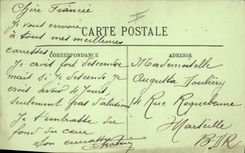 Chère Francée
Je vous envoie
à tous mes meilleures
caresses
CARTE POSTALE
CORRESPONDANCE
Je crois fort descendre
mais si je descends je
crois avoir 4 jours
seulement
Je t'embrasse du
fond du cœur
Ton
ADRESSE
Mademoiselle
Augusta
4 Rue Roquebrune
Marseille
B-D-R